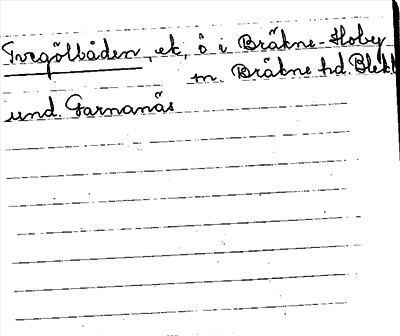 Tregölbåden, ek, ö i Bräkne-Hoby
sn. Bräkne hd. Blek
und. Garnanäs